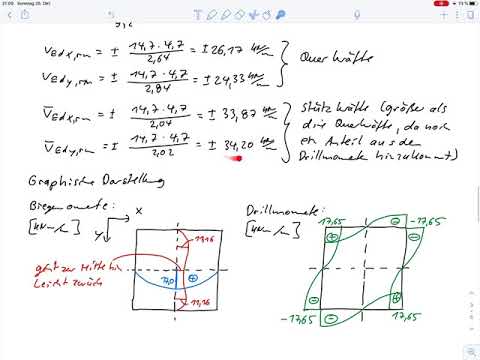 21:09 Sonntag 25. Okt.
73 %
v_Edx,rm = ± 14,7 · 4,7 / 2,64 = ± 26,17 kN/m
v_Edy,rm = ± 14,7 · 4,7 / 2,84 = ± 24,33 kN/m
Querkräfte
v̄_Edx,rm = ± 14,7 · 4,7 / 2,04 = ± 33,87 kN/m
v̄_Edy,rm = ± 14,7 · 4,7 / 2,02 = ± 34,20 kN/m
Stützkräfte (größer als
die Querkräfte, da noch
ein Anteil aus den
Drillmomente hinzukommt)
Graphische Darstellung
Biegemomente:
[kNm/m]
x
y
11,16
17,0
+
11,16
geht zur Mitte hin
leicht zurück
Drillmomente:
[kNm/m]
17,65
-17,65
+
-
-17,65
17,65
-
+